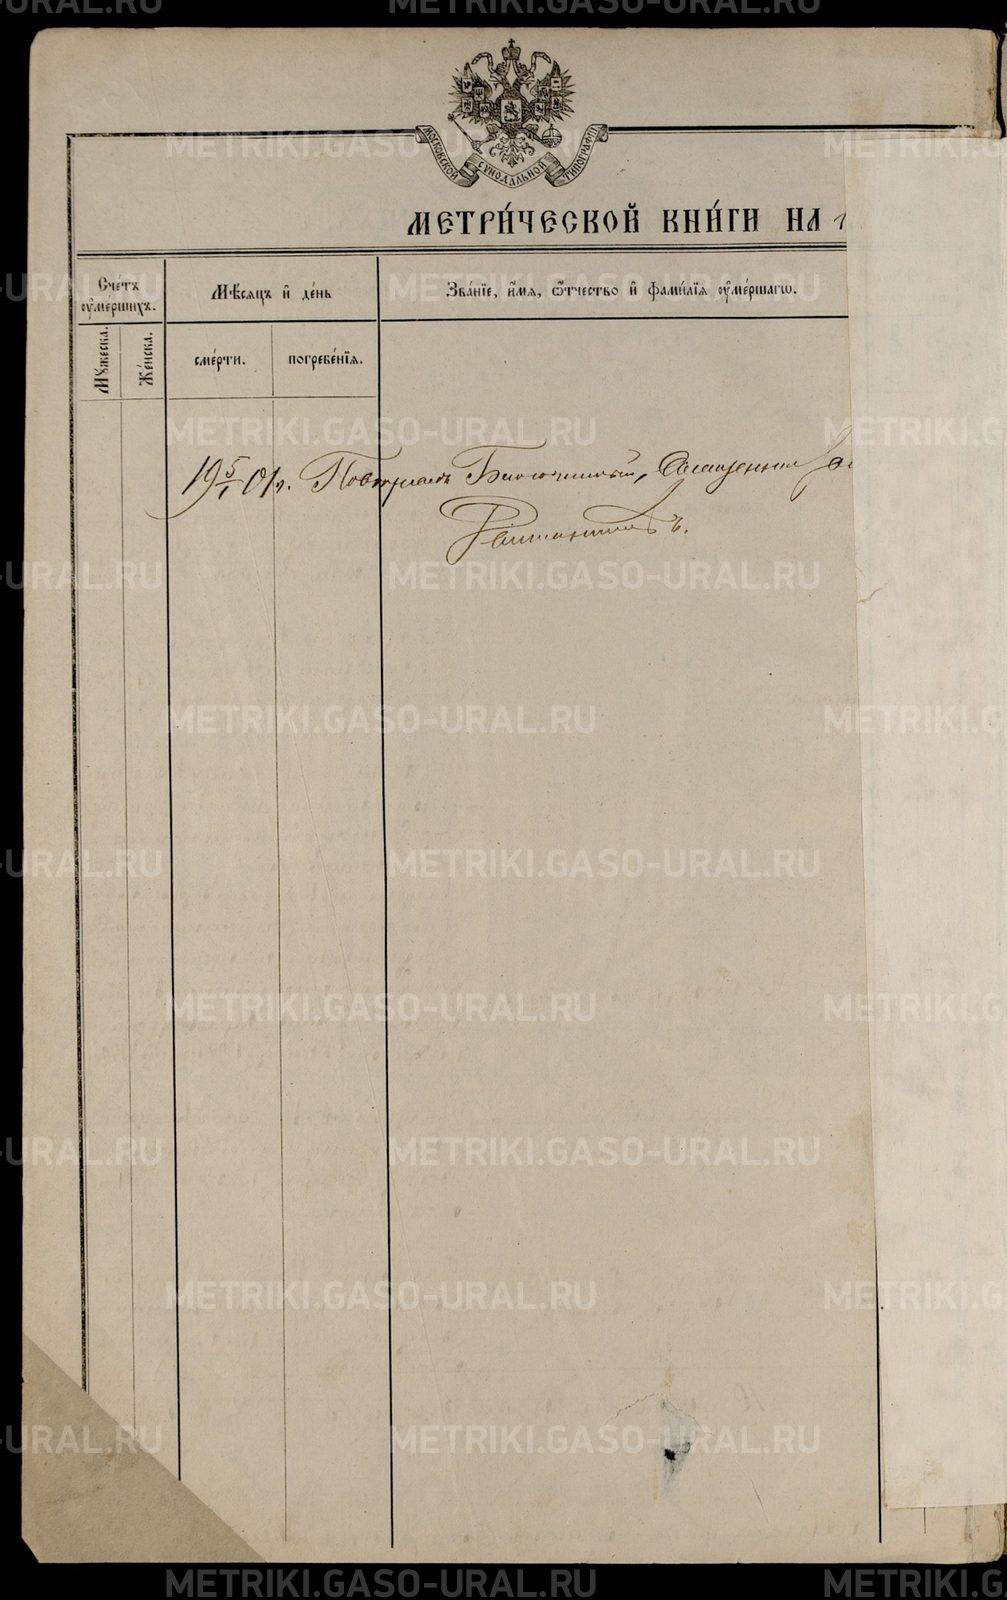 МОСКОВСКОЙ СѴНОДАЛЬНОЙ ТИПОГРАФІИ
МЕТРИ́ЧЕСКОЙ КНИ́ГИ НА 1
Сче́тъ оу҆ме́ршихъ.
Мѣ́сяцъ и҆ де́нь
Зва́нїе, и҆́мя, ѻ҆́тчество и҆ фами́лїя оу҆ме́ршагѡ.
Мꙋ́жеска.
Же́нска.
сме́рти.
погребе́нїя.
19 5/1 01 г. Повѣрялъ Благочинный, Священникъ
METRIKI.GASO-URAL.RU